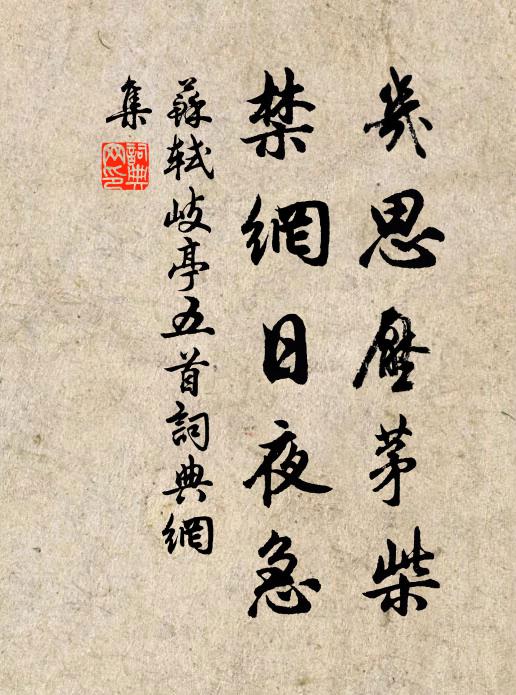 幾思壓茅柴
禁網日夜急
蘇軾岐亭五首詞典網
集
詞典
网印